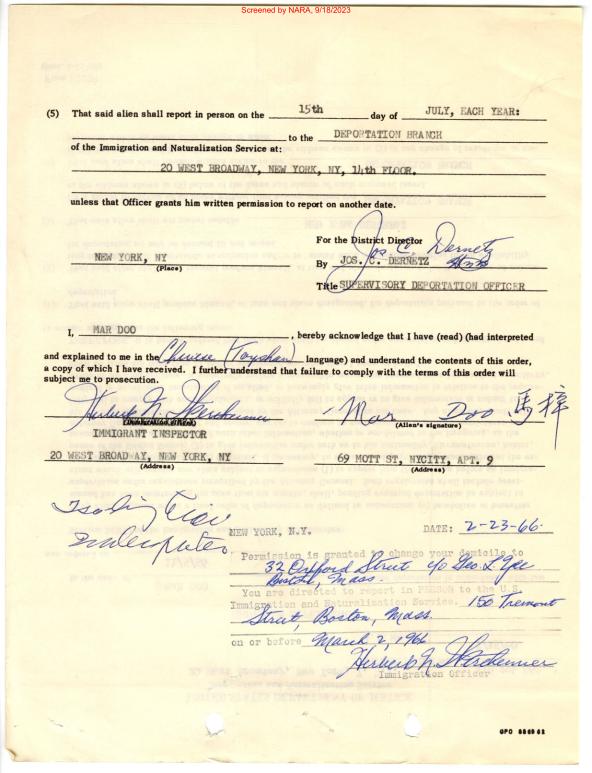 Screened by NARA, 9/18/2023
(5) That said alien shall report in person on the 15th day of JULY, EACH YEAR:
to the DEPORTATION BRANCH
of the Immigration and Naturalization Service at:
20 WEST BROADWAY, NEW YORK, NY, 14th FLOOR.
unless that Officer grants him written permission to report on another date.
For the District Director
Jos. C. Dernetz
NEW YORK, NY
(Place)
By JOS. C. DERNETZ
Title SUPERVISORY DEPORTATION OFFICER
I, MAR DOO, hereby acknowledge that I have (read) (had interpreted
and explained to me in the Chinese (Toyshan) language) and understand the contents of this order,
a copy of which I have received. I further understand that failure to comply with the terms of this order will
subject me to prosecution.
Mar Doo 馬梓
(Alien's signature)
IMMIGRANT INSPECTOR
20 WEST BROADWAY, NEW YORK, NY
(Address)
69 MOTT ST, NYCITY, APT. 9
(Address)
Interpreter
NEW YORK, N.Y. DATE: 2-23-66
Permission is granted to change your domicile to
32 Oxford Street c/o Geo L. Yee
Boston, Mass.
You are directed to report in PERSON to the U.S.
Immigration and Naturalization Service. 150 Tremont
Street, Boston, Mass.
on or before March 2, 1966
Immigration Officer
GPO